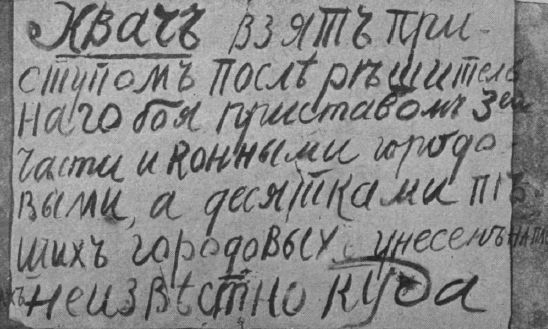 Квачъ взятъ при-
ступомъ послѣ рѣшитель
наго боя приставомъ 3ей
части и конными городо-
выми, а десятками пѣ
шихъ городовыхъ унесенъ
неизвѣстно куда